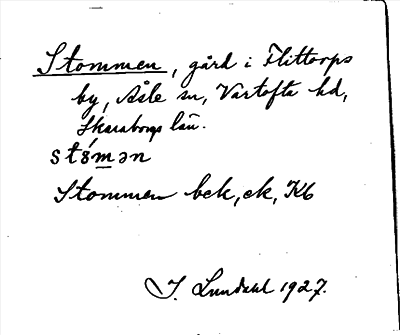 Stommen, gård i Flittorps
by, Åsle sn, Vartofta hd,
Skaraborgs län.
Stommen bek, ek, Kb
I. Lundahl 1927.